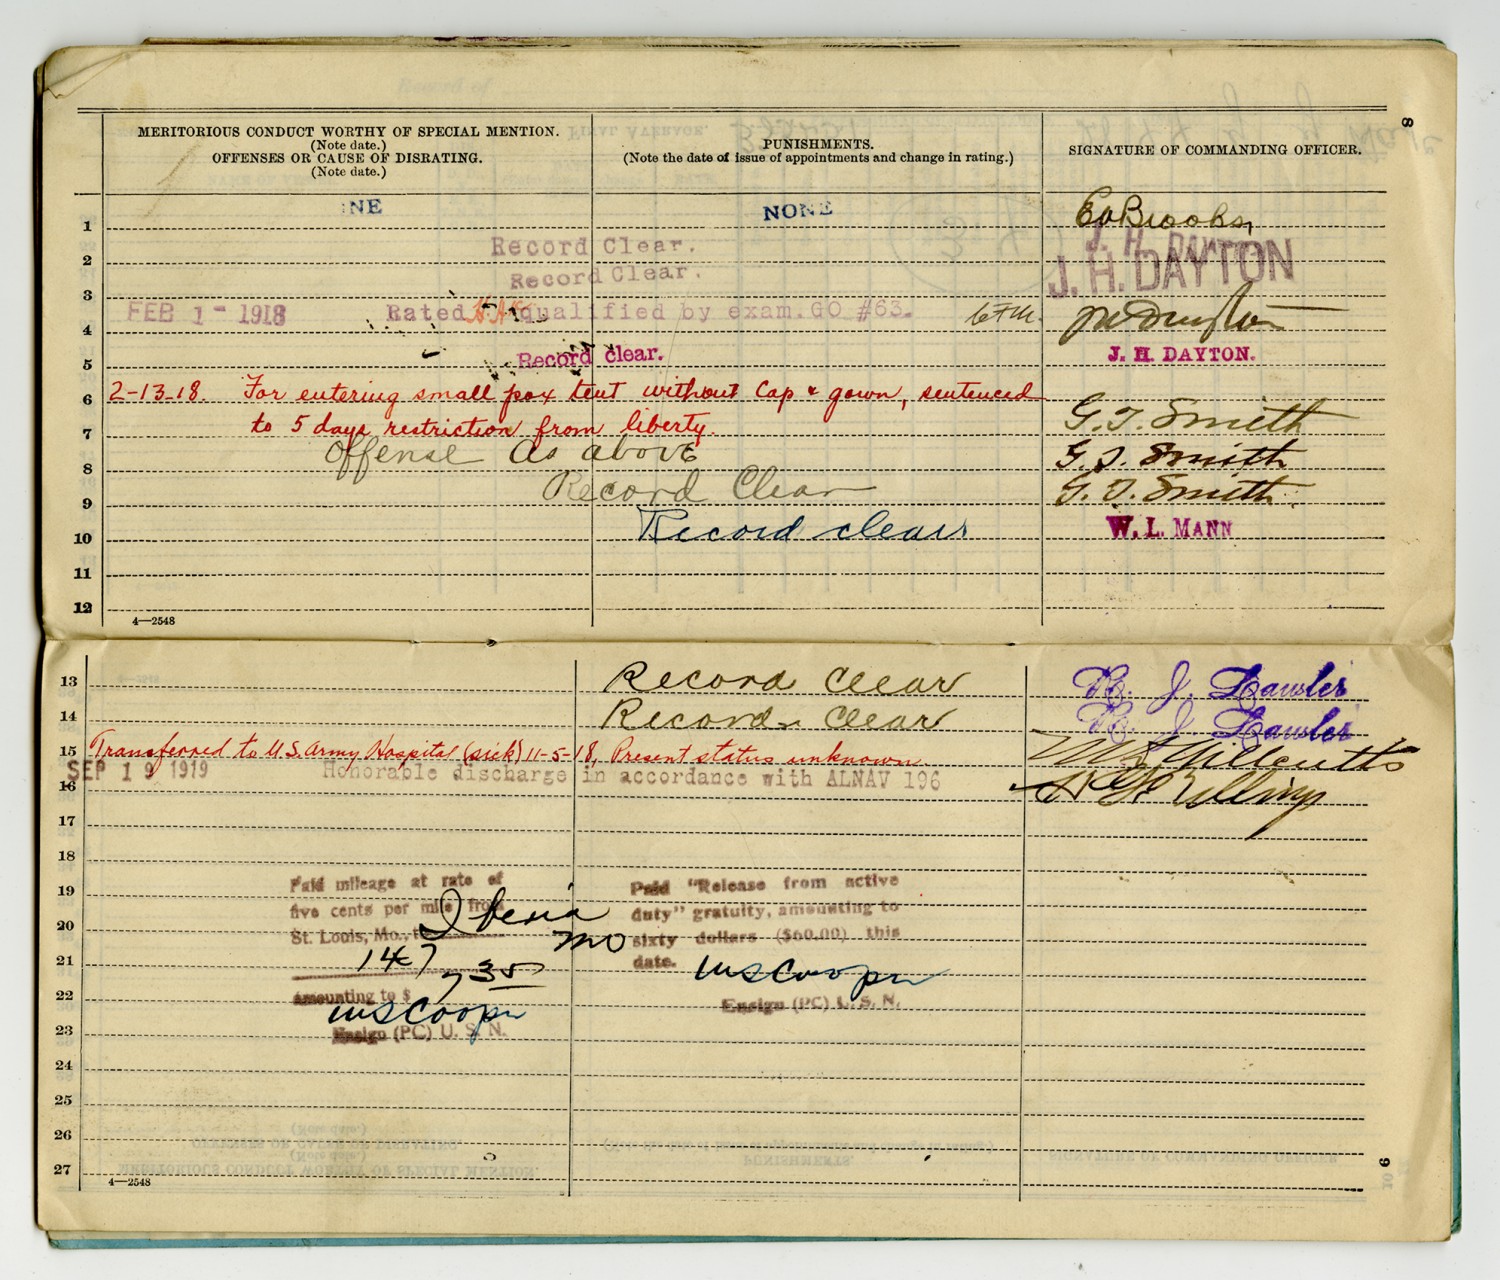 8
MERITORIOUS CONDUCT WORTHY OF SPECIAL MENTION.
(Note date.)
OFFENSES OR CAUSE OF DISRATING.
(Note date.)
PUNISHMENTS.
(Note the date of issue of appointments and change in rating.)
SIGNATURE OF COMMANDING OFFICER.
NE NONE
1 Record Clear. J. H. DAYTON
2 Record Clear. J. H. DAYTON
3 FEB 1 - 1918 Rated qualified by exam. GO #63.
4
5 Record clear. J. H. DAYTON.
6 2-13-18. For entering small pox tent without Cap & gown, sentenced
7 to 5 days restriction from liberty. G. T. Smith
8 Offense As above G. T. Smith
9 Record Clear G. T. Smith
10 Record clear W. L. MANN
11
12
4—2548
13 Record Clear R. J. Lawler
14 Record Clear R. J. Lawler
15 Transferred to U.S. Army Hospital (sick) 11-5-18, Present status unknown.
SEP 19 1919 Honorable discharge in accordance with ALNAV 196
16
17
18
19 Paid mileage at rate of
five cents per mile from
20 St. Louis, Mo., to Iberia Mo
21 147
22 amounting to $ 7.35
WSCooper
23 Ensign (PC) U. S. N.
Paid "Release from active
duty" gratuity, amounting to
sixty dollars ($60.00) this
date. WSCooper
Ensign (PC) U. S. N.
24
25
26
27
4—2548
9